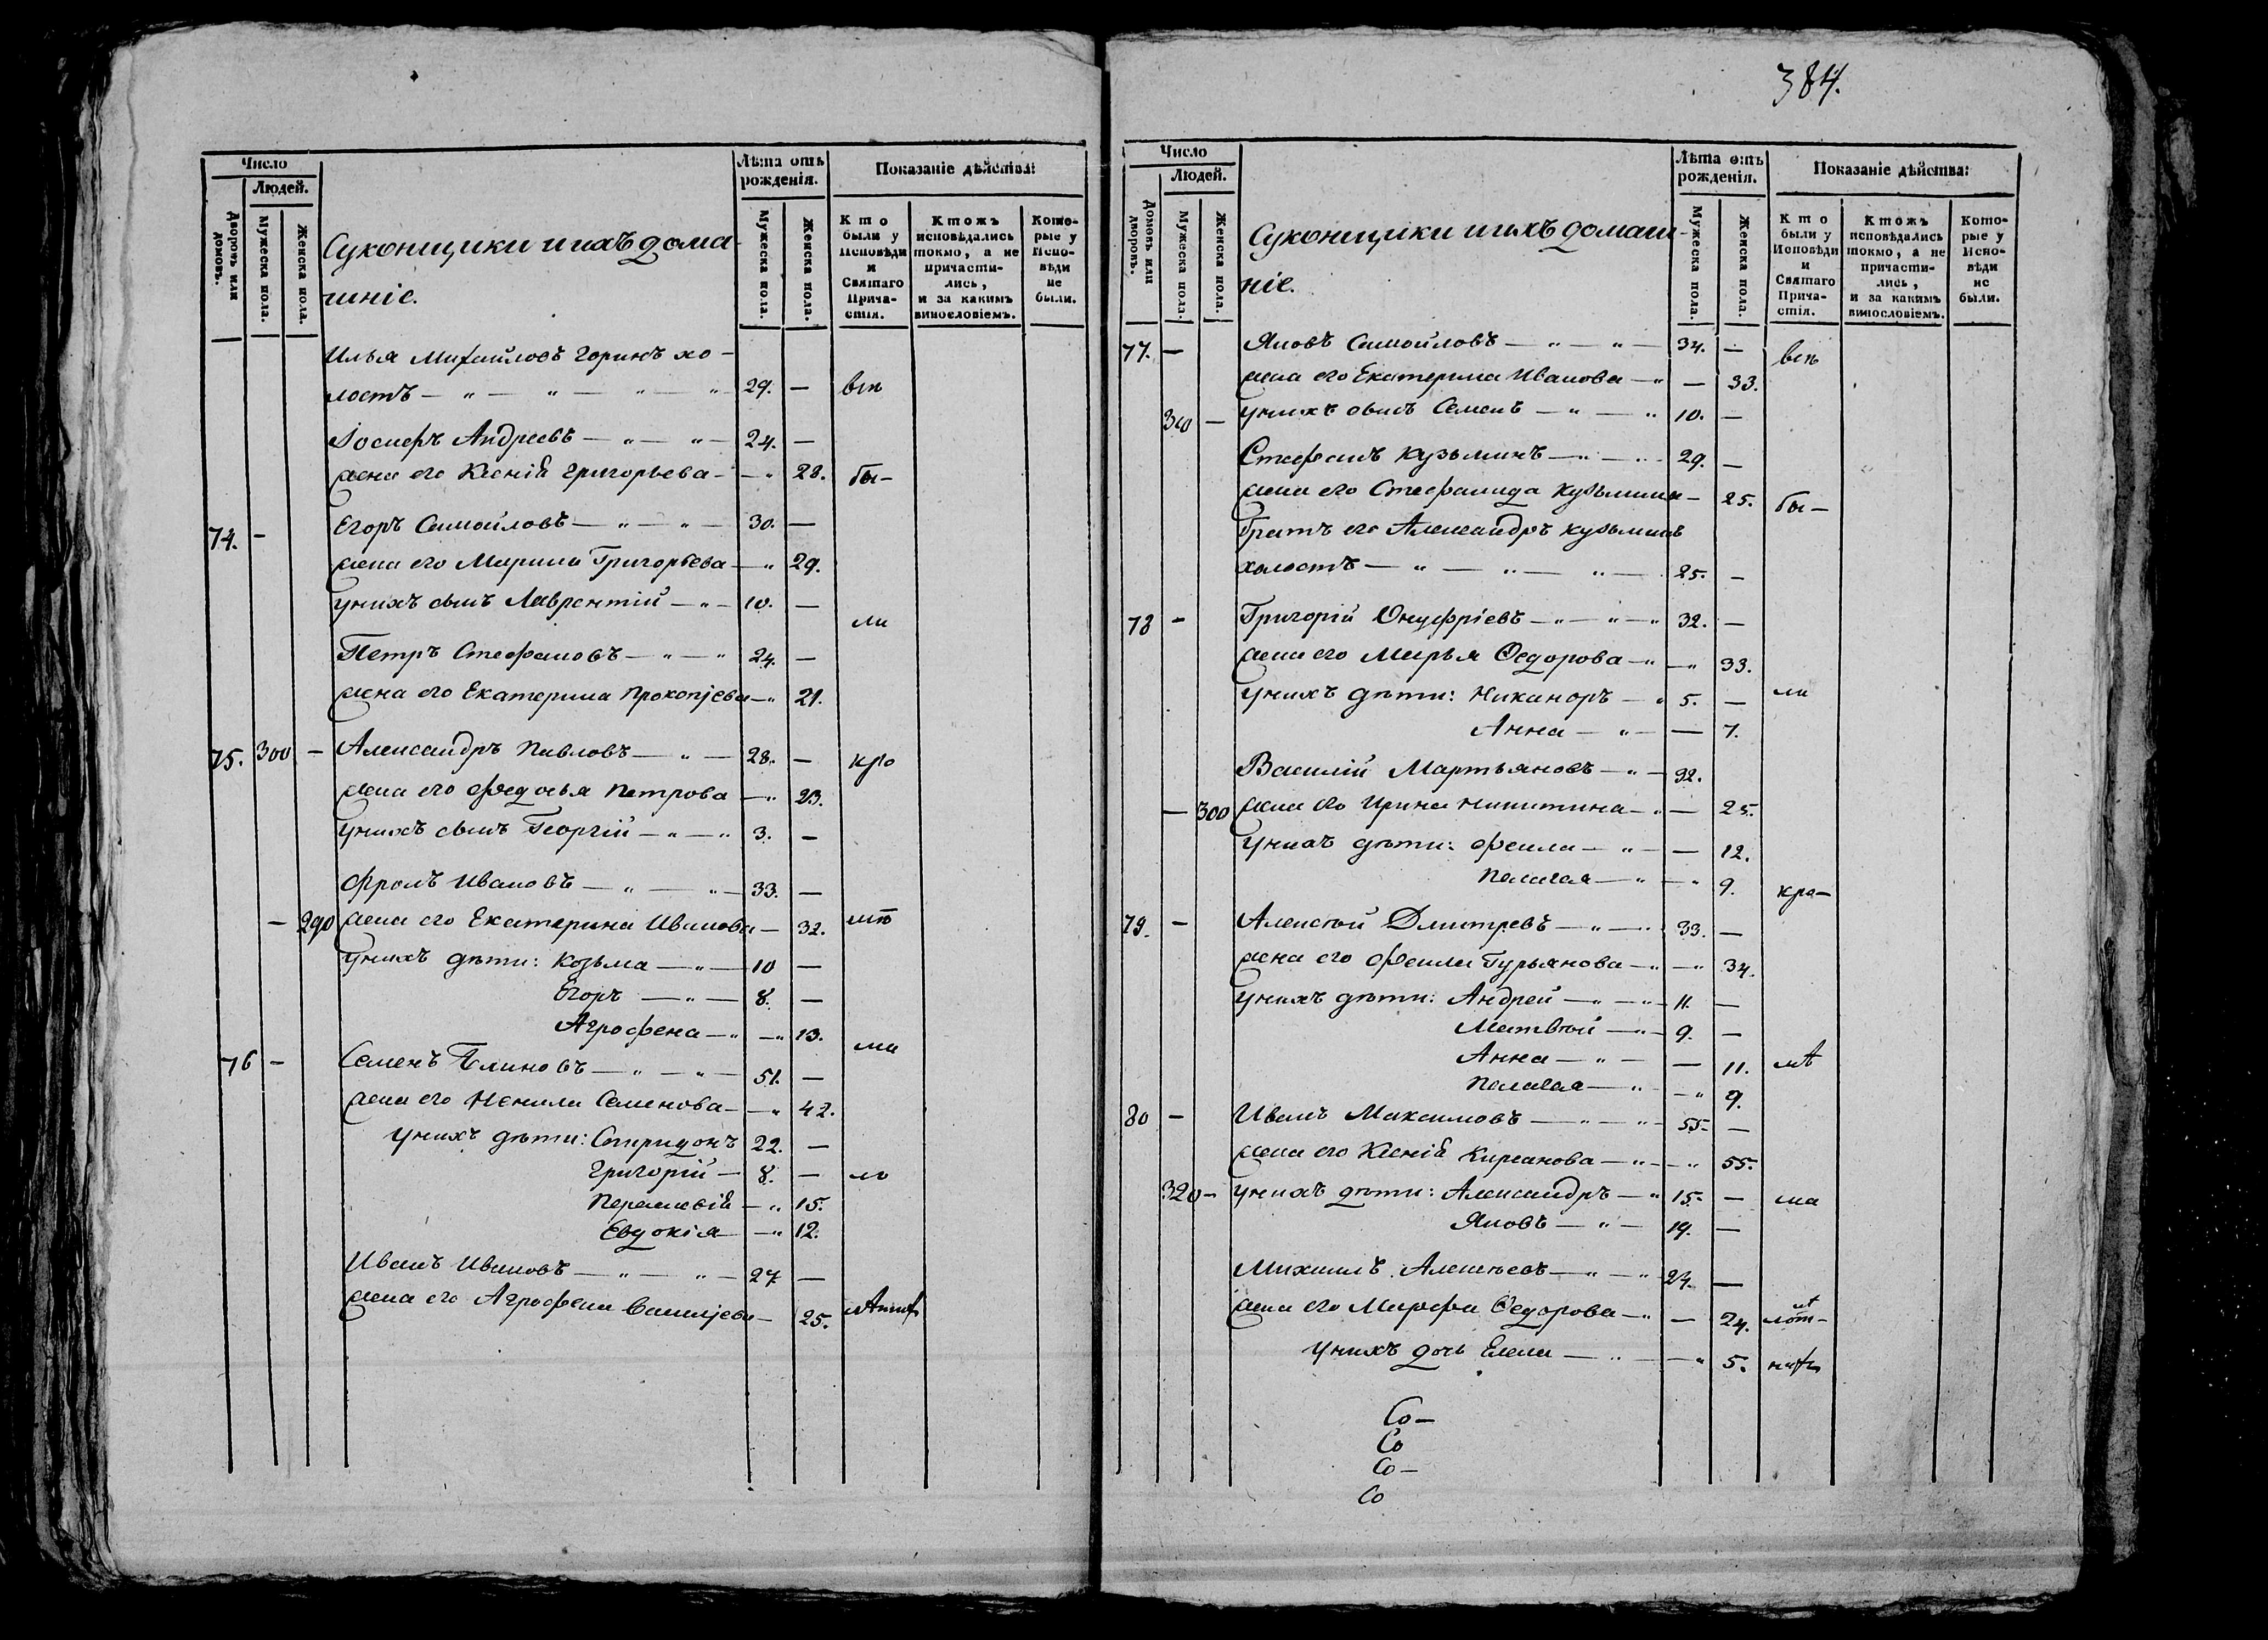 Число
Людей.
Дворовъ или домовъ.
Мужеска пола.
Женска пола.
Суконщики и ихъ дома-
шніе.
Лѣта отъ рожденія.
Мужеска пола.
Женска пола.
Показаніе дѣйства:
Кто были у Исповѣди и Святаго Прича-стія.
Ктожъ исповѣдались токмо, а не причасти-лись, и за какимъ винословіемъ.
Кото-рые у Испо-вѣди не были.
Илья Михайловъ Горинъ хо-
лостъ — 29. — всѣ
Іосифъ Андреевъ — 24. —
жена его Ксенія Григорьева — 28. бы-
74. — Егоръ Самойловъ — 30. —
жена его Марина Григорьева — 29.
у нихъ сынъ Лаврентій — 10. —
ли
Петръ Стефановъ — 24. —
жена его Екатерина Прокопіева — 21.
75. 300 — Александръ Павловъ — 28. — кро
жена его Федосья Петрова — 23.
у нихъ сынъ Георгій — 3. —
Фролъ Ивановъ — 33. —
— 290 жена его Екатерина Иванова — 32.
у нихъ дѣти: Козьма — 10 —
Егоръ — 8. —
Агрофена — 13.
76 — Семенъ Блиновъ — 51. —
жена его Ненила Семенова — 42.
у нихъ дѣти: Спиридонъ 22. —
Григорій — 8. —
Парасковія — 15.
Евдокія — 12.
Иванъ Ивановъ — 27 —
жена его Агрофена Василіева — 25.
384.
Число
Людей.
Домовъ или дворовъ.
Мужеска пола.
Женска пола.
Суконщики и ихъ домаш-
ніе.
Лѣта отъ рожденія.
Мужеска пола.
Женска пола.
Показаніе дѣйства:
Кто были у Исповѣди и Святаго Прича-стія.
Ктожъ исповѣдались токмо, а не причасти-лись, и за какимъ винословіемъ.
Кото-рые у Испо-вѣди не были.
77. — Яковъ Самойловъ — 34. — всѣ
жена его Екатерина Иванова — 33.
310 — у нихъ сынъ Семенъ — 10. —
Стефанъ Кузьминъ — 29. —
жена его Стефанида Кузьмина — 25. бы-
братъ его Александръ Кузьминъ
холостъ — 25. —
78 — Григорій Онуфріевъ — 32. —
жена его Марья Ѳедорова — 33.
у нихъ дѣти: Никаноръ — 5. — ли
Анна — 7.
Василій Мартьяновъ — 32.
— 300 жена его Ирина Никитина — 25.
у нихъ дѣти: Фекла — 12.
Пелагея — 9. кро-
79. — Алексѣй Дмитревъ — 33. —
жена его Фекла Гурьянова — 34.
у нихъ дѣти: Андрей — 11. —
Матвѣй — 9. —
Анна — 11. мѣ
Пелагея — 9.
80 — Иванъ Максимовъ — 55. —
жена его Ксенія Кирсанова — 55.
320 — у нихъ дѣти: Александръ — 15. —
Яковъ — 19. —
Михаилъ Алексѣевъ — 24. —
жена его Марфа Ѳедорова — 24.
у нихъ дочь Елена — 5.
Со-
Со
Со-
Со